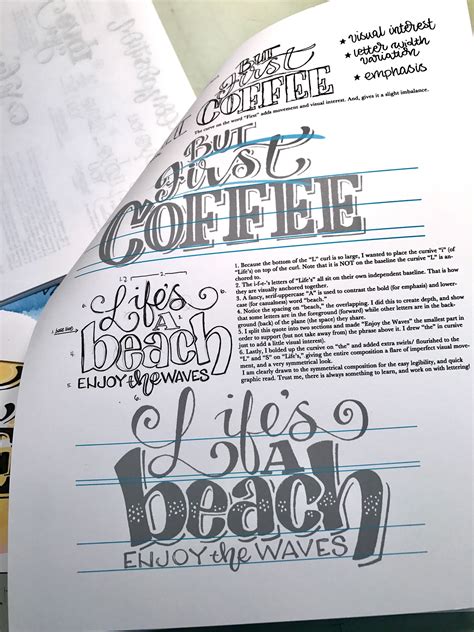 BUT
First
COFFEE
★ visual interest
★ letter width
variation
★ emphasis
The curve on the word "First" adds movement and visual interest. And, gives it a slight imbalance.
BUT
First
COFFEE
1. Because the bottom of the "L" curl is so large, I wanted to place the cursive "i" (of
"Life's) on top of the curl. Note that it is NOT on the baseline the cursive "L" is an-
chored to.
2. The i-f-e-'s letters of "Life's" all sit on their own independent baseline. That is how
they are visually anchored together.
3. A fancy, serif-uppercase "A" is used to contrast the bold (for emphasis) and lower-
case (for casualness) word "beach."
4. Notice the spacing on "beach," the overlapping. I did this to create depth, and show
that some letters are in the foreground (forward) while other letters are in the back-
ground (back) of the plane (the space) they share.
5. I split this quote into two sections and made "Enjoy the Waves" the smallest part in
order to support (but not take away from) the phrase above it. I drew "the" in cursive
just to add a little visual interest).
6. Lastly, I bolded up the cursive on "the" and added extra swirls/ flourished to the
"L" and "S" on "Life's," giving the entire composition a flare of imperfect visual move-
ment, and a very symmetrical look.
I am clearly drawn to the symmetrical composition for the easy legibility, and quick
graphic read. Trust me, there is always something to learn, and work on with lettering!
Life's
A
beach
ENJOY the WAVES
Life's
A
beach
ENJOY the WAVES